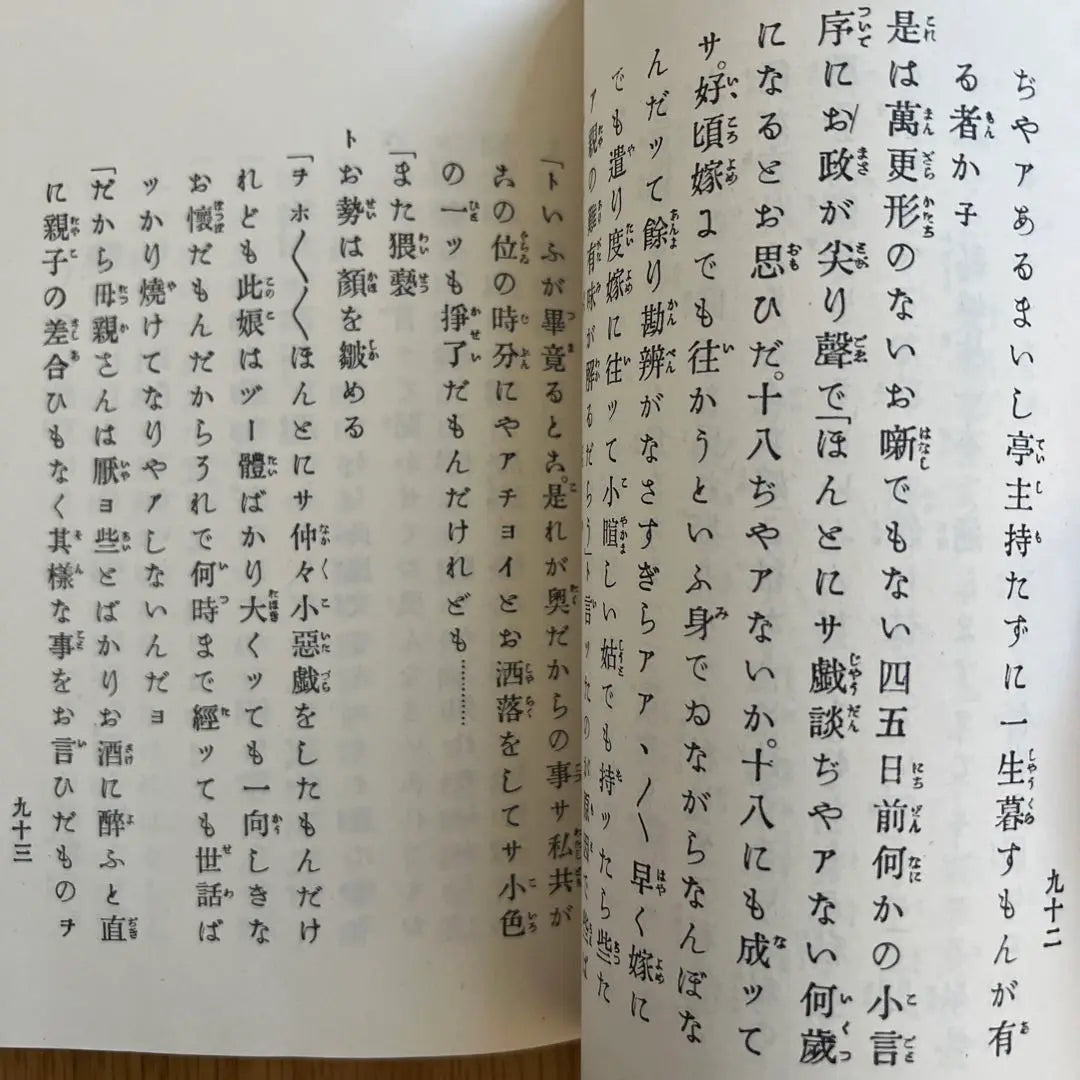 ぢやアあるまいし亭主持たずに一生暮すもんが有
る者か子
是は萬更形のないお噺でもない四五日前何かの小言
序にお政が尖り聲で「ほんとにサ戯談ぢやアない何歳
になるとお思ひだ。十八ぢやアないか。十八にも成ッて
サ。好頃嫁にでも往かうといふ身でゐながらなんぼな
んだッて餘り勘辨がなさすぎらアアヽ〳〵早く嫁に
でも遣り度嫁に往ッて小喧しい姑でも持ッたら些た
ア親の難有味が解るだらう」ト言ッたのが原因で些ば
九十二
「トいふが畢竟るとこ。是れが奥だからの事サ私共が
この位の時分にやアチョイとお洒落をしてサ小色
の一ッも掙了だもんだけれども…………
「また猥褻
トお勢は顔を皺める
「ヲホ〳〵〳〵ほんとにサ仲々小惡戯をしたもんだけ
れども此娘はヅー體ばかり大くッても一向しきな
お懷だもんだからろれで何時まで經ッても世話ば
ッかり燒けてなりやアしないんだョ
「だから母親さんは厭ョ些とばかりお酒に醉ふと直
に親子の差合ひもなく其樣な事をお言ひだものヲ
九十三